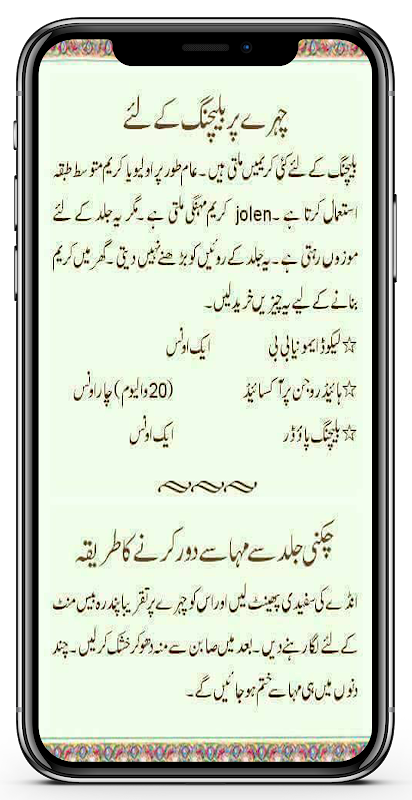 چہرے پر بلیچنگ کے لئے
بلیچنگ کے لئے کئی کریمیں ملتی ہیں۔ عام طور پر اولیویا کریم متوسط طبقہ
استعمال کرتا ہے۔ jolen کریم مہنگی ملتی ہے۔ مگر یہ جلد کے لئے
موزوں رہتی ہے۔ یہ جلد کے روئیں کو بڑھنے نہیں دیتی۔ گھر میں کریم
بنانے کے لیے یہ چیزیں خرید لیں۔
☆ لیکوڈ ایمونیا بی پی ایک اونس
☆ ہائیڈروجن پر آکسائیڈ (20 والیوم) چار اونس
☆ بلیچنگ پاؤڈر ایک اونس
چکنی جلد سے مہاسے دور کرنے کا طریقہ
انڈے کی سفیدی پھینٹ لیں اور اس کو چہرے پر تقریبا پندرہ بیس منٹ
کے لئے لگا رہنے دیں۔ بعد میں صابن سے منہ دھو کر خشک کر لیں۔ چند
دنوں میں ہی مہاسے ختم ہو جائیں گے۔